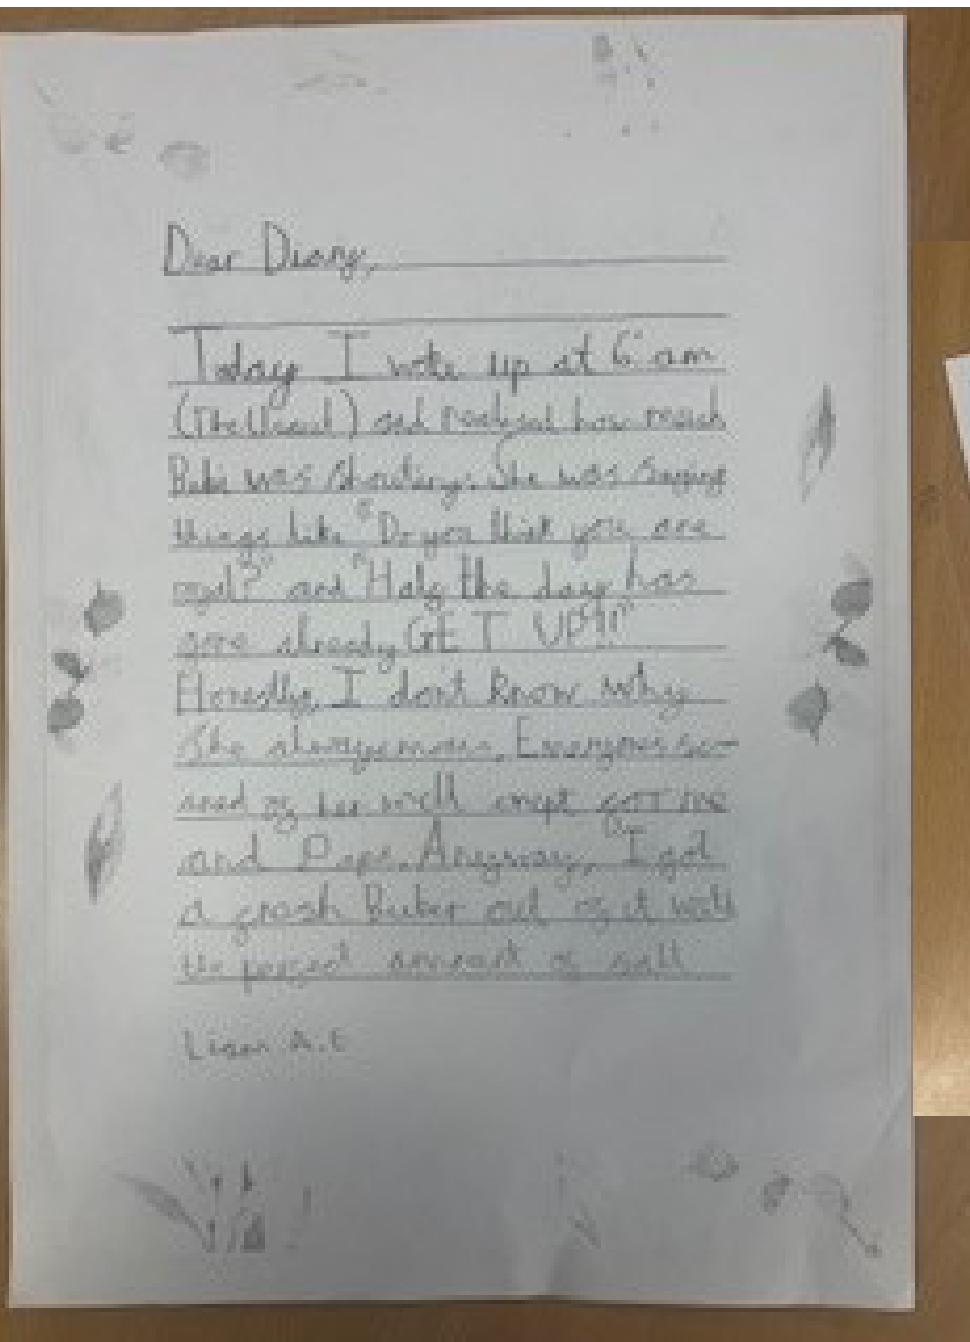 Dear Diary,
Today I woke up at 6 am
(the usual) and realised how much
was shouting. She was saying
things like "Do you think you are
and "Half the day has
gone already GET UP!!!"
Honestly, I don't know why
She always moans. Everyones sc-
ared of her well exept for me
and Papa. Anyway, I got
a out of it with
the perfect amount of salt
Liam A.E